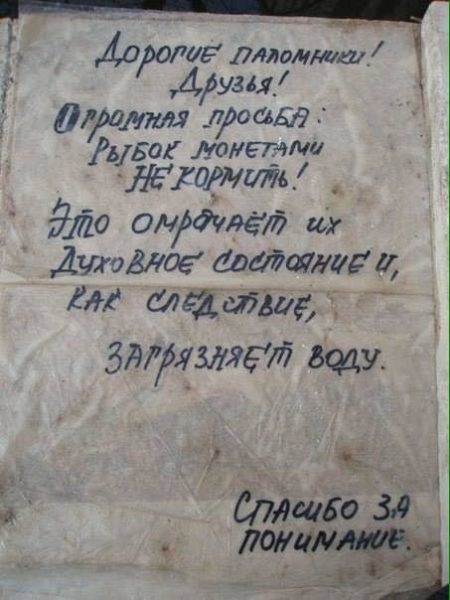 Дорогие паломники!
Друзья!
Огромная просьба:
Рыбок монетами
НЕ кормить!
Это омрачает их
Духовное состояние и,
как следствие,
загрязняет воду.
Спасибо за
понимание.